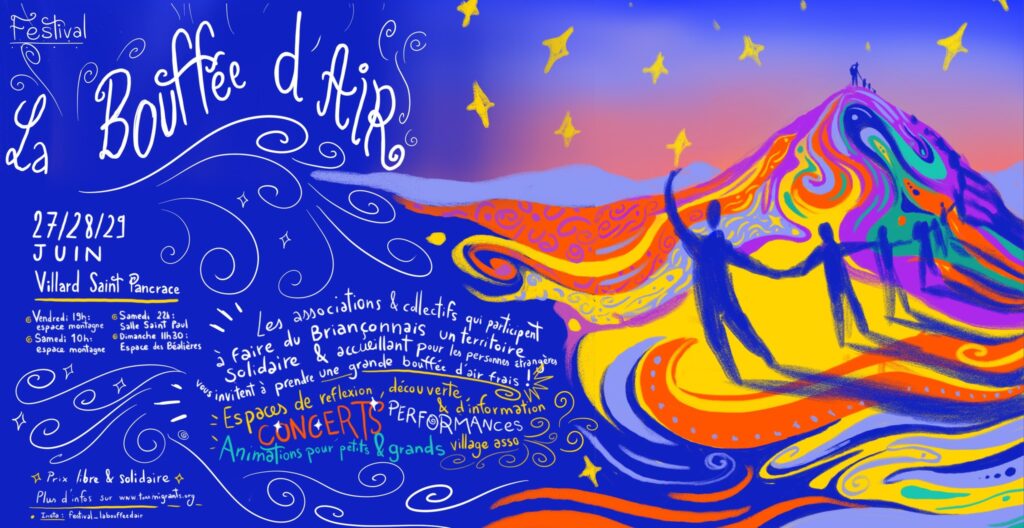 Festival
La Bouffée d'AiR
27/28/29
JUIN
Villard Saint Pancrace
Vendredi 19h:
espace montagne
Samedi 10h:
espace montagne
Samedi 22h:
Salle Saint Paul
Dimanche 11h30:
Espace des Béalières
Les associations & collectifs qui participent
à faire du Briançonnais un territoire
solidaire & accueillant pour les personnes étrangères
vous invitent à prendre une grande bouffée d'air frais !
Espaces de reflexion, découverte,
& d'information
CONCERTS PERFORMANCES
Animations pour petits & grands village asso
Prix libre & solidaire
Plus d'infos sur www.tousmigrants.org
Insta: festival_labouffeedair